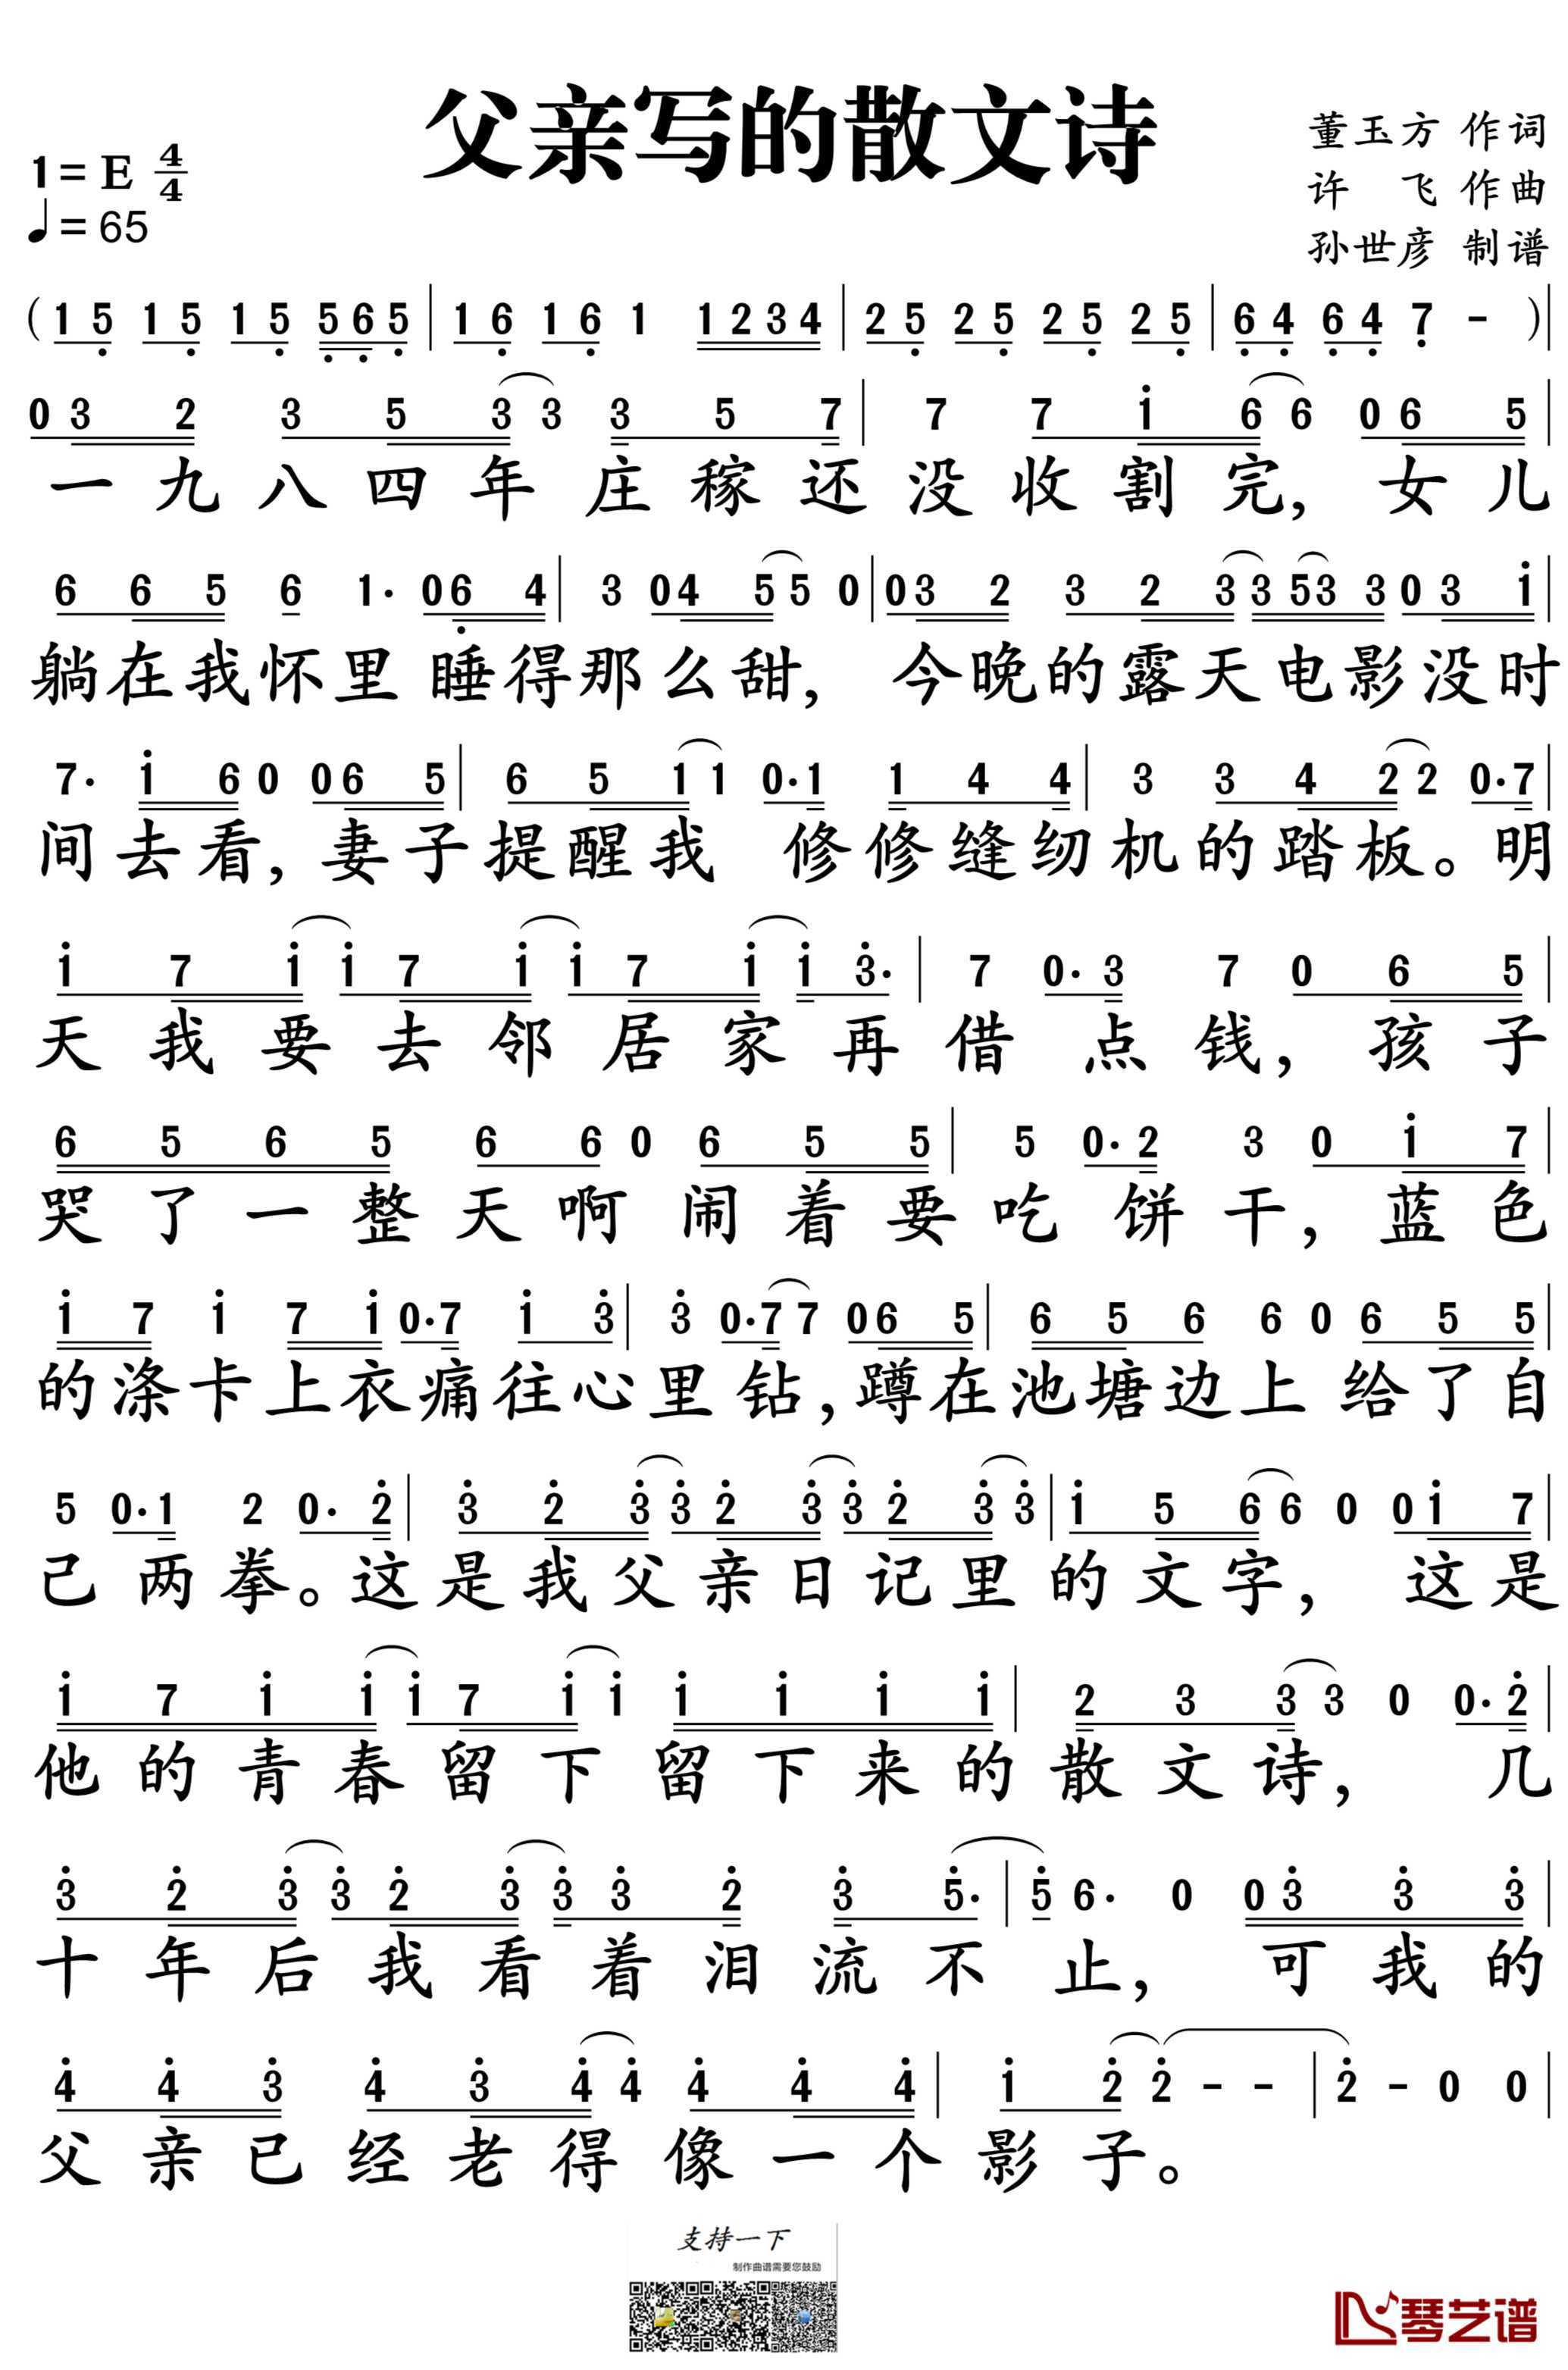 父亲写的散文诗
董玉方 作词
许 飞 作曲
孙世彦 制谱
1= E 4/4
♩= 65
( 1 5̣ 1 5̣ 1 5̣ 5̣ 6̣ 5̣ | 1 6̣ 1 6̣ 1 1 2 3 4 | 2 5̣ 2 5̣ 2 5̣ 2 5̣ | 6̣ 4̣ 6̣ 4̣ 7̣ - ) |
0 3 2 3 5 3 3 3 5 7 | 7 7 1̇ 6 6 0 6 5 |
一九八四年庄稼还没收割完, 女儿
6 6 5 6 1· 0 6̣ 4 | 3 0 4 5 5 0 | 0 3 2 3 2 3 3 5 3 3 0 3 1̇ |
躺在我怀里 睡得那么甜, 今晚的露天电影没时
7· 1̇ 6 0 0 6 5 | 6 5 1 1 0· 1 1 4 4 | 3 3 4 2 2 0· 7 |
间去看, 妻子提醒我 修修缝纫机的踏板。明
1̇ 7 1̇ 1̇ 7 1̇ 1̇ 7 1̇ 1̇ 3̇· | 7 0· 3 7 0 6 5 |
天我要去邻居家再借点钱, 孩子
6 5 6 5 6 6 0 6 5 5 | 5 0· 2 3 0 1̇ 7 |
哭了一整天啊闹着要吃饼干, 蓝色
1̇ 7 1̇ 7 1̇ 0· 7 1̇ 3̇ | 3̇ 0· 7 7 0 6 5 | 6 5 6 6 0 6 5 5 |
的涤卡上衣痛往心里钻, 蹲在池塘边上给了自
5 0· 1 2 0· 2̇ | 3̇ 2̇ 3̇ 3̇ 2̇ 3̇ 3̇ 2̇ 3̇ 3̇ | 1̇ 5 6 6 0 0 1̇ 7 |
己两拳。这是我父亲日记里的文字, 这是
1̇ 7 1̇ 1̇ 1̇ 7 1̇ 1̇ 1̇ 1̇ 1̇ 1̇ | 2 3 3 3 0 0· 2̇ |
他的青春留下留下来的散文诗, 几
3̇ 2̇ 3̇ 3̇ 2̇ 3̇ 3̇ 3̇ 2̇ 3̇ 5̇· | 5̇ 6· 0 0 3̇ 3̇ 3̇ |
十年后我看着泪流不止, 可我的
4̇ 4̇ 3̇ 4̇ 3̇ 4̇ 4̇ 4̇ 4̇ 4̇ | 1̇ 2̇ 2̇ - - | 2̇ - 0 0 |
父亲已经老得像一个影子。
支持一下
制作曲谱需要您鼓励
琴艺谱